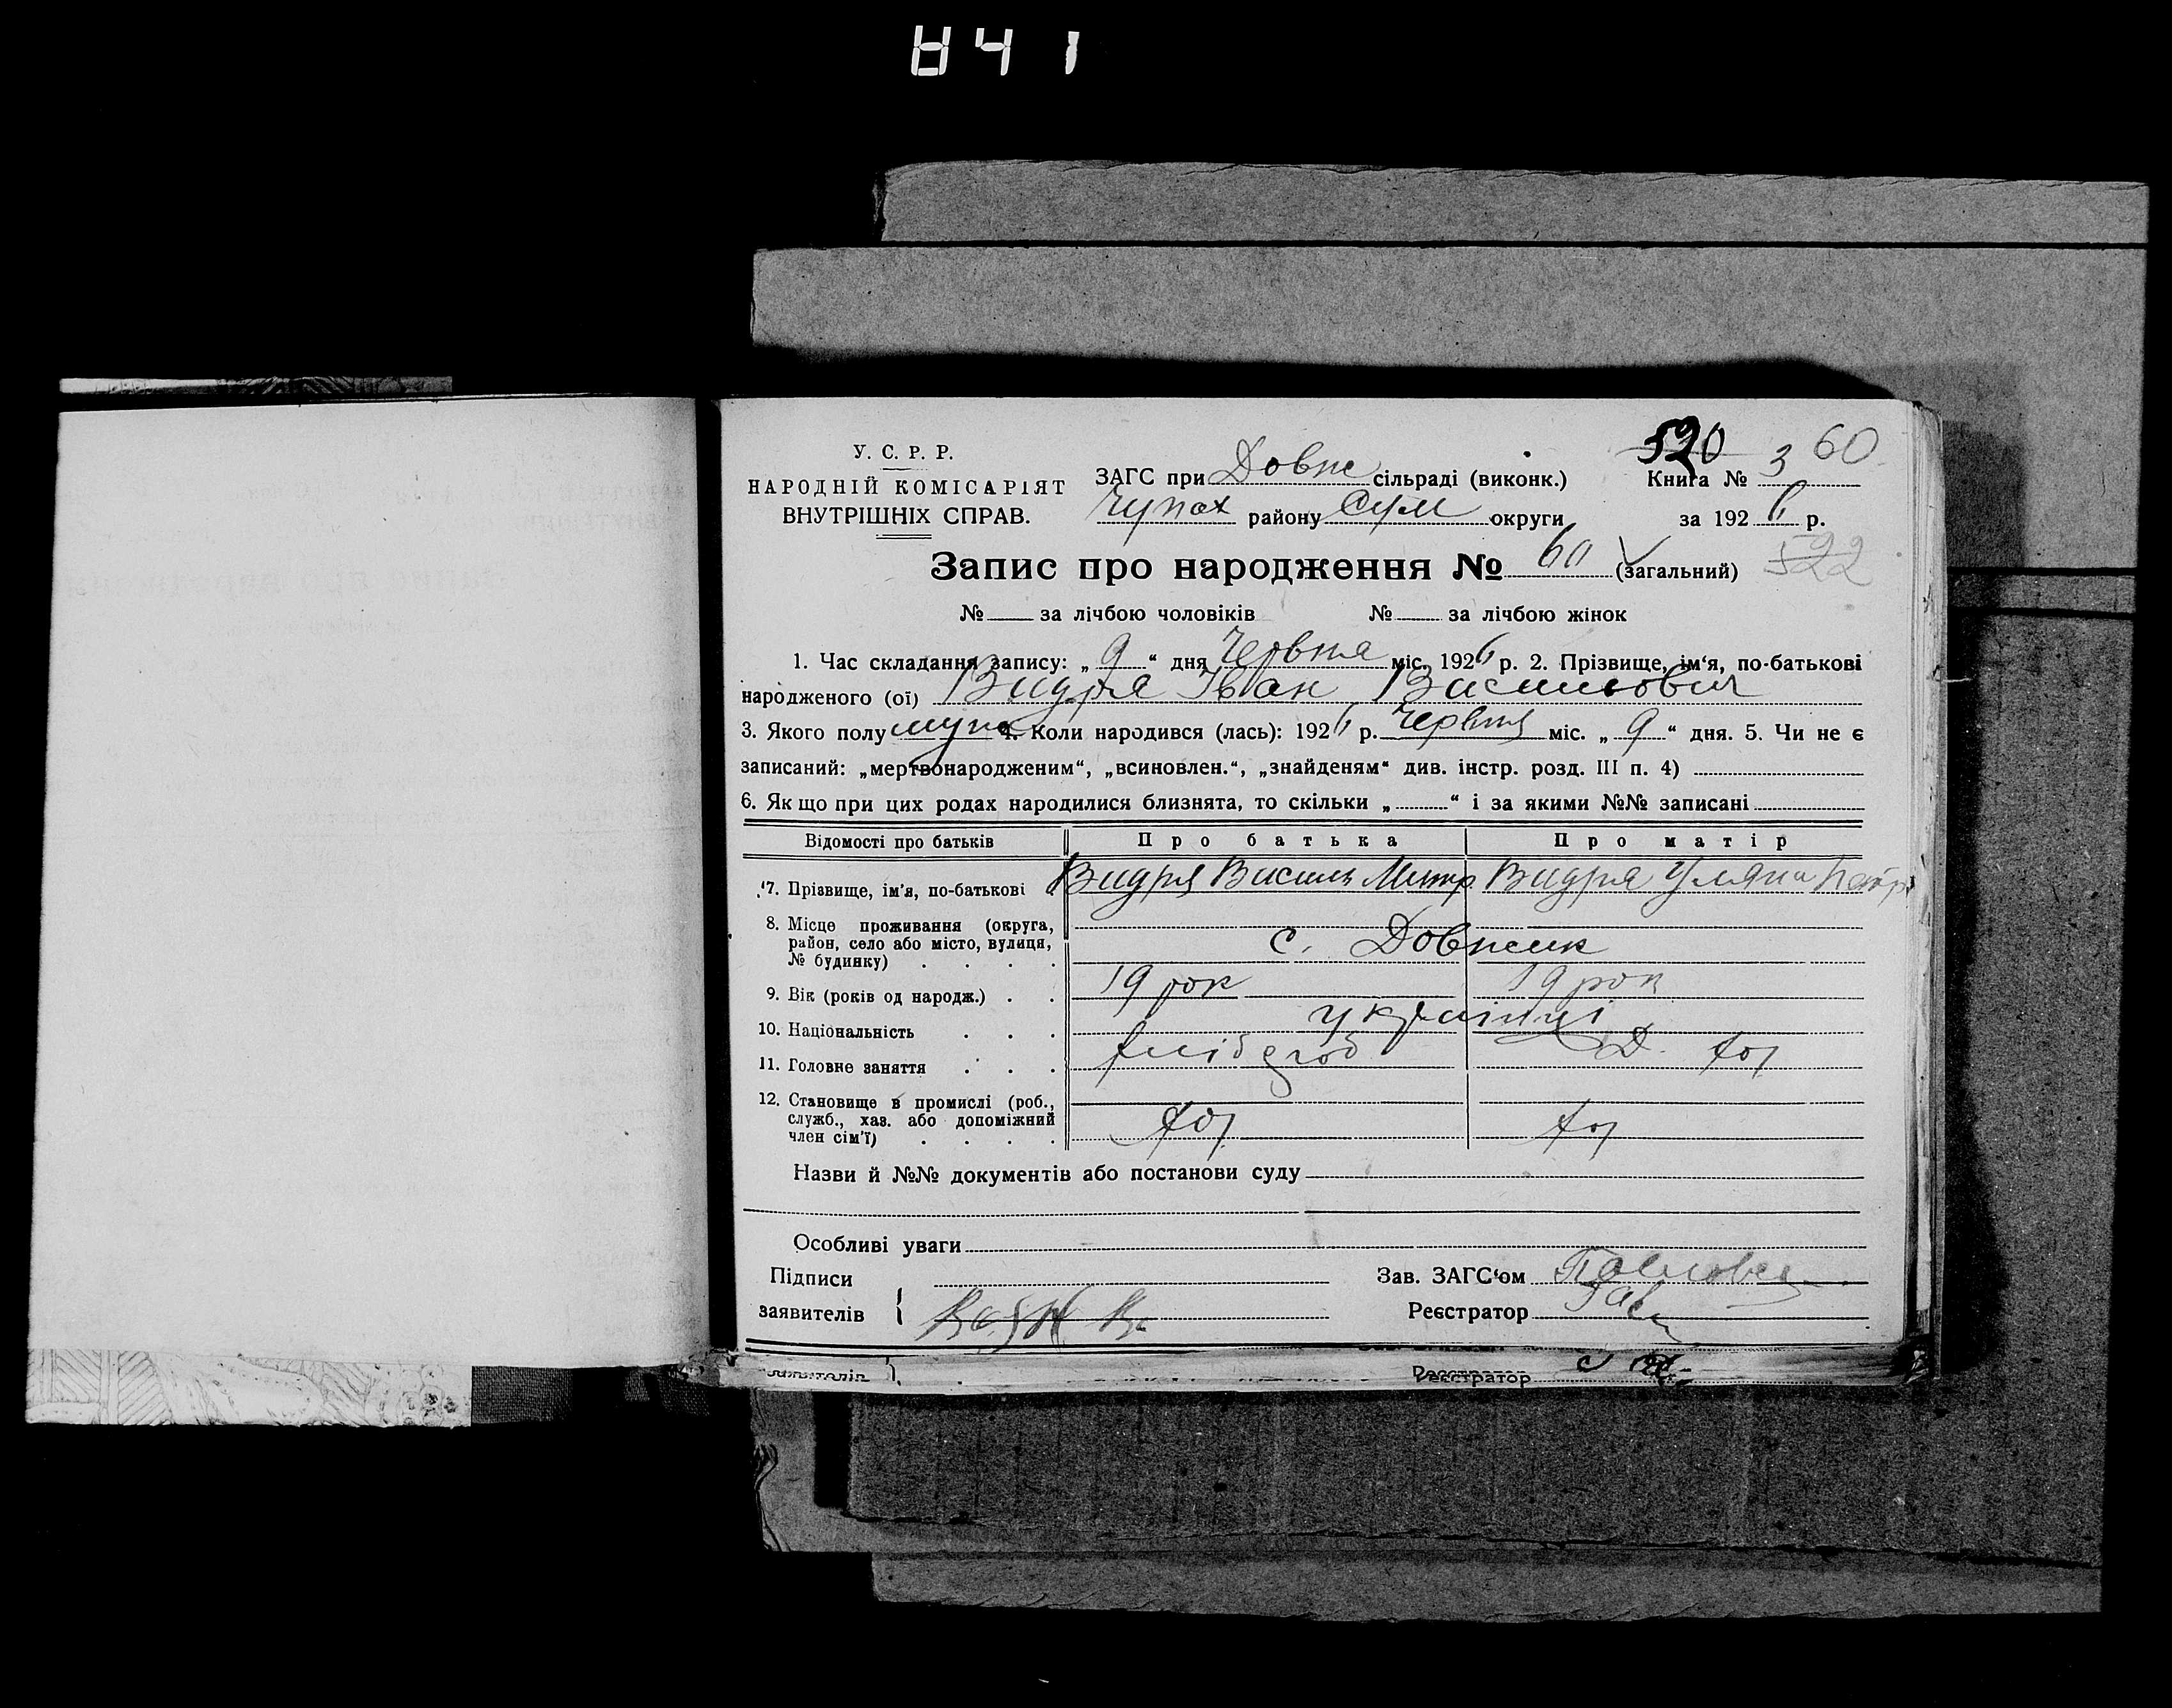 841
520 60
У. С. Р. Р.
НАРОДНІЙ КОМІСАРІЯТ
ВНУТРІШНІХ СПРАВ.
ЗАГС при Довж сільраді (виконк.) Книга № 3
Чупах району Сум округи за 1926 р.
Запис про народження № 60 (загальний) 522
№ за лічбою чоловіків № за лічбою жінок
1. Час складання запису: „ 9 “ дня Червня міс. 1926 р. 2. Прізвище, ім‘я, по-батькові
народженого (ої) Видря Іван Васильович
3. Якого полу муж 4. Коли народився (лась): 1926 р. Червня міс. „ 9 “ дня. 5. Чи не є
записаний: „мертвонародженим“, „всиновлен.“, „знайденям“ див. інстр. розд. III п. 4)
6. Якщо при цих родах народилися близнята, то скільки „ “ і за якими №№ записані
Відомості про батьків Про батька Про матір
7. Прізвище, ім‘я, по-батькові Видря Василь Митр. Видря Уляна Петр
8. Місце проживання (округа,
район, село або місто, вулиця,
№ будинку) с. Довжик
9. Вік (років од народж.) 19 рок 19 рок
10. Національність українці
11. Головне заняття хлібороб Д. хоз
12. Становище в промислі (роб.,
служб., хаз. або допоміжний
член сім‘ї) хоз хоз
Назви й №№ документів або постанови суду
Особливі уваги
Підписи
заявителів
Зав. ЗАГС‘ом
Реєстратор
заявителів Реєстратор